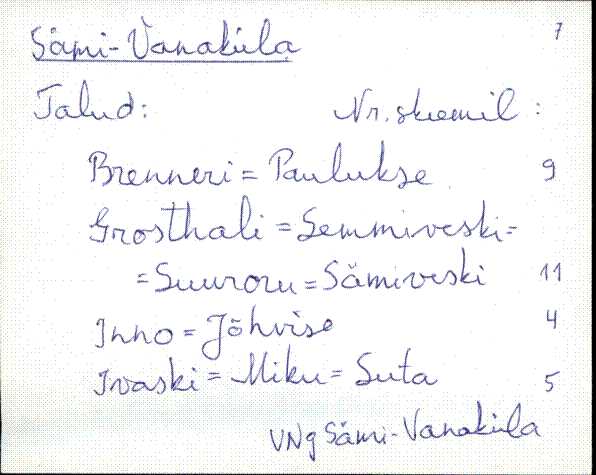 7
Sämi-Vanaküla
Talud: Nr. skeemil:
Brenneri = Paulukse 9
Grosthali = Semmiveski =
= Suuroru = Sämiveski 11
Inno = Jõhvise 4
Ivaski = Miku = Suta 5
VNg Sämi-Vanaküla